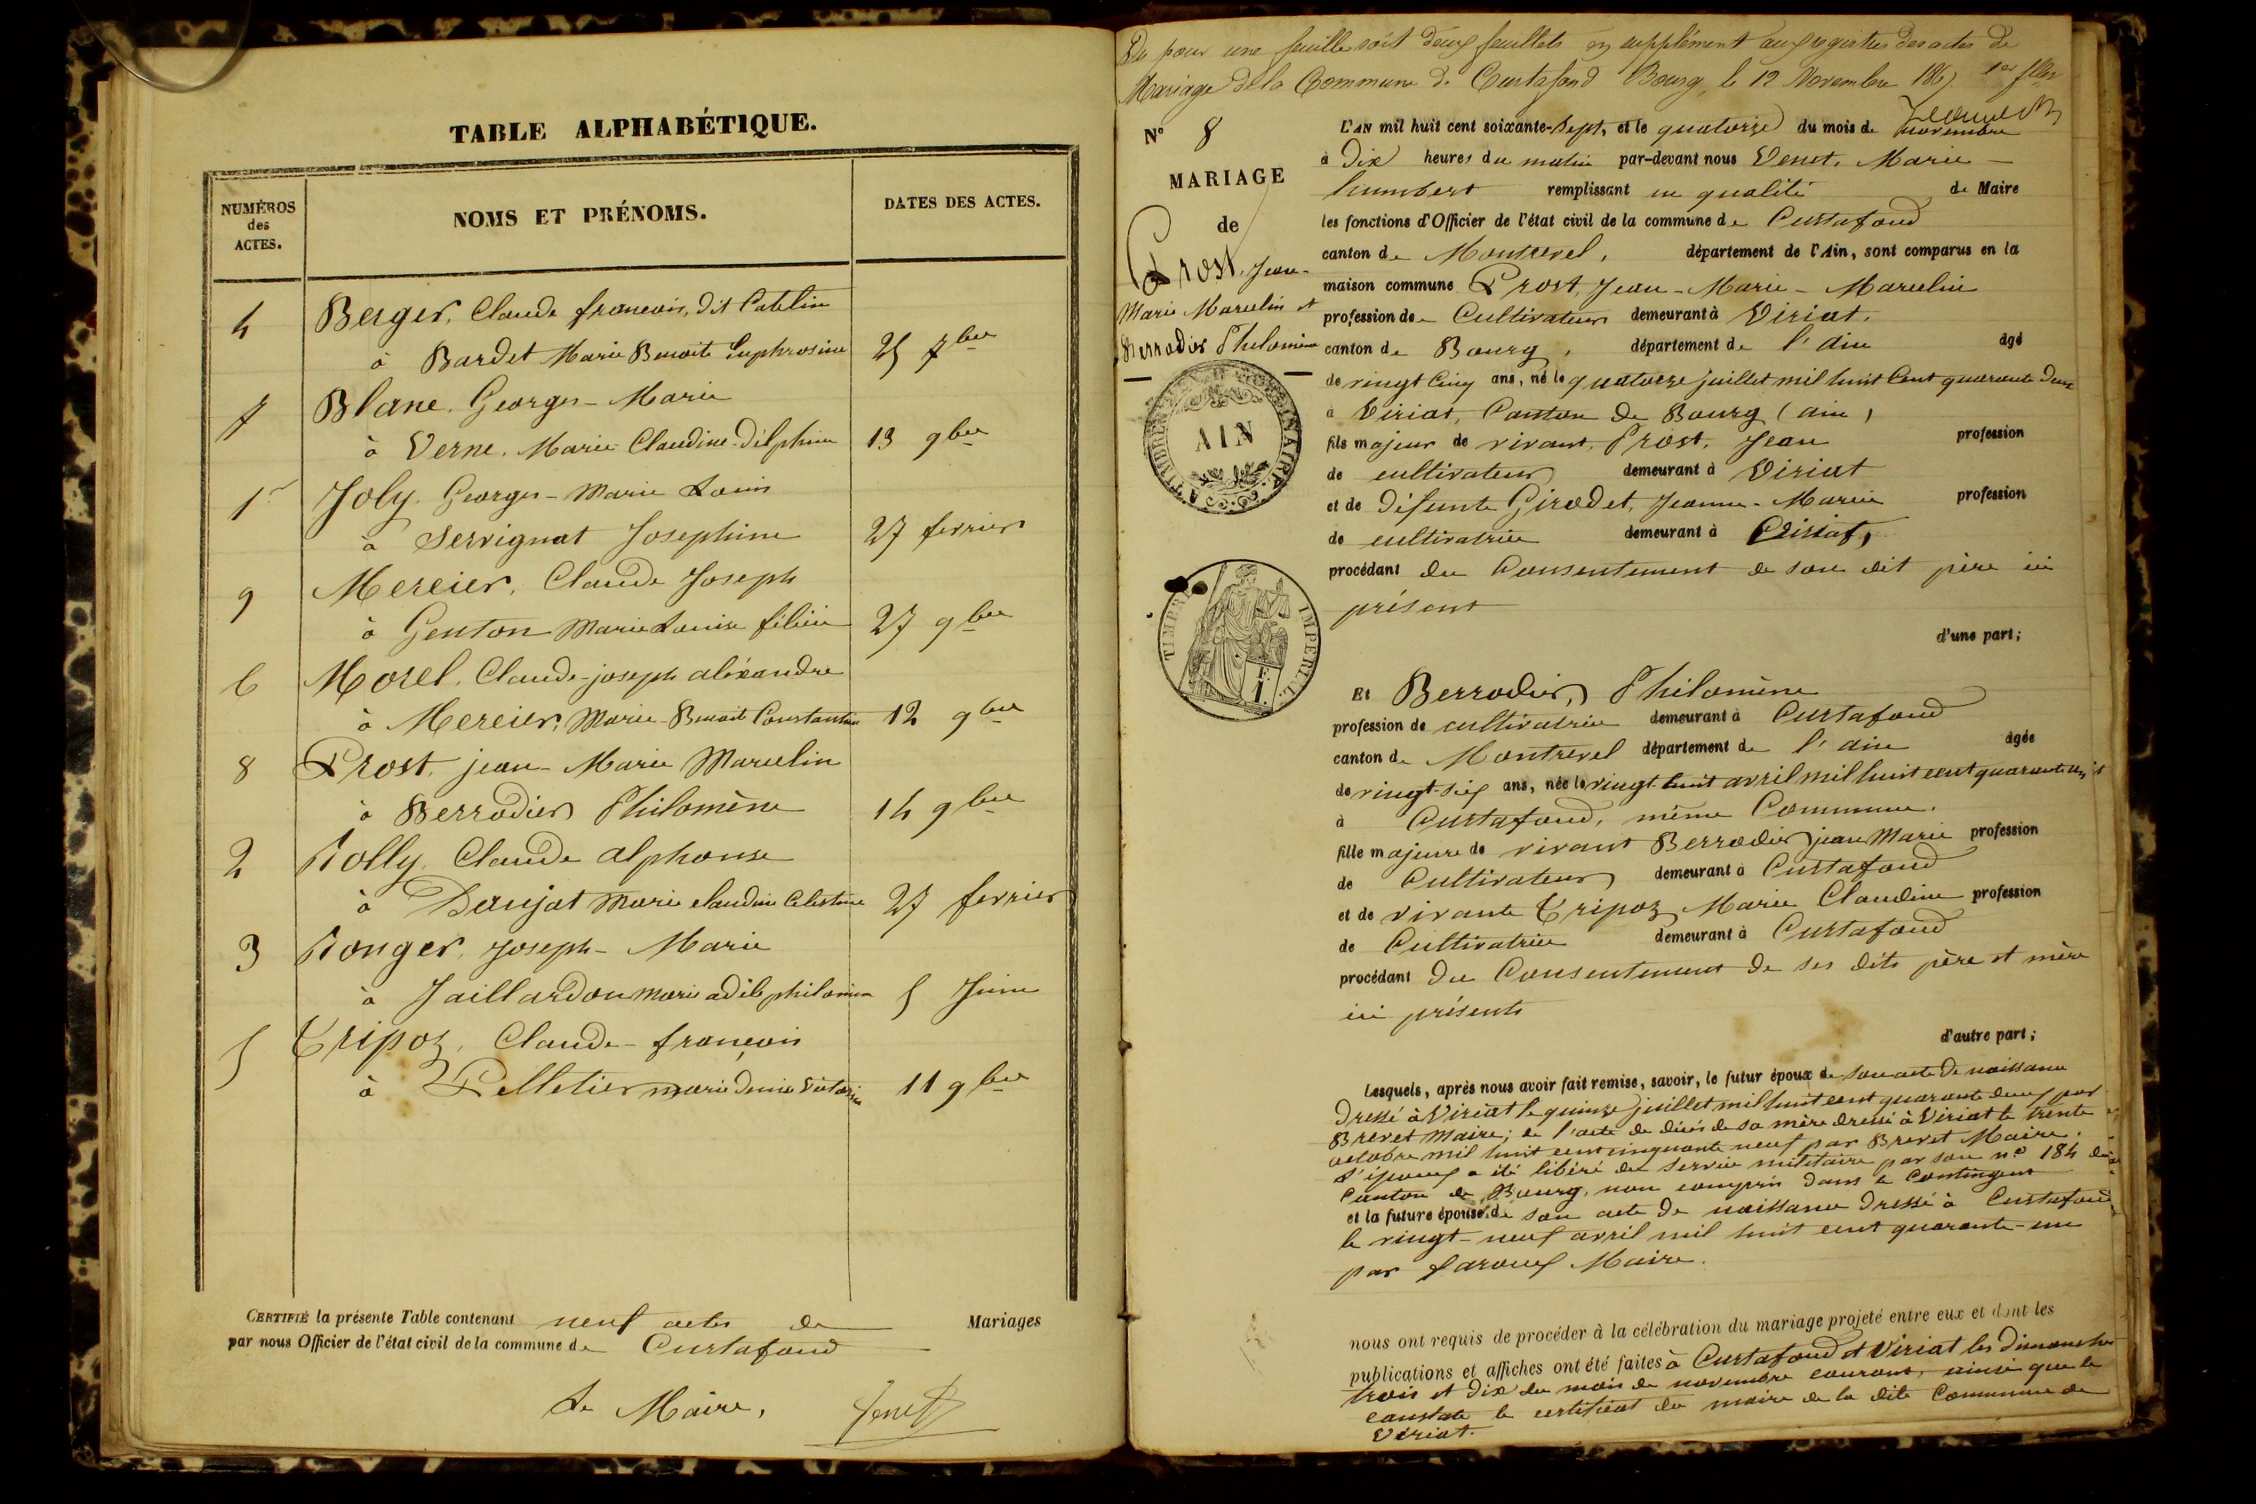 TABLE ALPHABÉTIQUE.
NUMÉROS
des
ACTES.
NOMS ET PRÉNOMS.
DATES DES ACTES.
4 Berger, Claude françois, dit Catelin
à Bardet Marie Benoite Euphrosine 25 7bre
7 Blanc, Georges-Marie
à Verne, Marie Claudine Délphine 13 9bre
1er Joly, Georges-Marie Louis
à Servignat Josephine 27 fevrier
9 Mercier, Claude Joseph
à Genton Marie Louise félicie 27 9bre
6 Morel, Claude-joseph aléxandre
à Mercier, Marie-Benoit Constantine 12 9bre
8 Prost, jean-Marie Marcelin
à Berrodier Philomène 14 9bre
2 Rolly, Claude alphonse
à Daujat Marie claudine Celestine 27 fevrier
3 Ronger, Joseph-Marie
à Jaillardon marie adèle philomène 5 Juin
5 Tripoz, Claude-françois
à Pelletier marie denise 11 9bre
CERTIFIÉ la présente Table contenant neuf actes de Mariages
par nous Officier de l'état civil de la commune de Curtafond
Le Maire,
Venet
Vu pour une feuille soit deux feuillets en supplément aux registres des actes de
Mariage de la Commune de Curtafond Bourg, le 12 Novembre 1867 1er fllet
N° 8
MARIAGE
de
Prost, Jean-
Marie Marcelin et
Berrodier Philomène
TIMBRE EXTRAORDINAIRE
AIN
TIMBRE IMPERIAL
1 F.
L'AN mil huit cent soixante-sept, et le quatorze du mois de novembre
à Dix heures du matin par-devant nous Venet, Marie
humbert remplissant en qualité de Maire
les fonctions d'Officier de l'état civil de la commune de Curtafond
canton de Montrevel, département de l'Ain, sont comparus en la
maison commune Prost, Jean-Marie-Marcelin
profession de Cultivateur demeurant à Viriat,
canton de Bourg, département de l'ain âgé
de vingt Cinq ans, né le quatorze juillet mil huit Cent quarante deux
à Viriat, Canton de Bourg (ain)
fils majeur de vivant, Prost, Jean profession
de cultivateur demeurant à Viriat
et de défunte Girodet, Jeanne-Marie profession
de cultivatrice demeurant à Viriat,
procédant du Consentement de son dit père ici
présent
d'une part;
Et Berrodier, Philomène
profession de cultivatrice demeurant à Curtafond
canton de Montrevel département de l'ain âgée
de vingt-six ans, née le vingt-huit avril mil huit cent quarante un
à Curtafond, même Commune.
fille majeure de vivant Berrodier jean Marie profession
de Cultivateur demeurant à Curtafond
et de vivante Tripoz Marie Claudine profession
de Cultivatrice demeurant à Curtafond
procédant du Consentement de ses dits père et mère
ici présents
d'autre part;
Lesquels, après nous avoir fait remise, savoir, le futur époux de son acte de naissance
dressé à Viriat le quinze juillet mil huit cent quarante deux par
Brevet Maire; de l'acte de décès de sa mère dressé à Viriat le trente
octobre mil huit cent cinquante neuf par Brevet Maire.
L'époux a été libéré du service militaire par son n° 184 du
Canton de Bourg, non compris dans le Contingent
et la future épouse de son acte de naissance dressé à Curtafond
le vingt-neuf avril mil huit cent quarante-un
par Maire.
nous ont requis de procéder à la célébration du mariage projeté entre eux et dont les
publications et affiches ont été faites à Curtafond et Viriat les dimanches
trois et dix du mois de novembre courant, ainsi que le
constate le certificat du maire de la dite Commune de
Viriat.